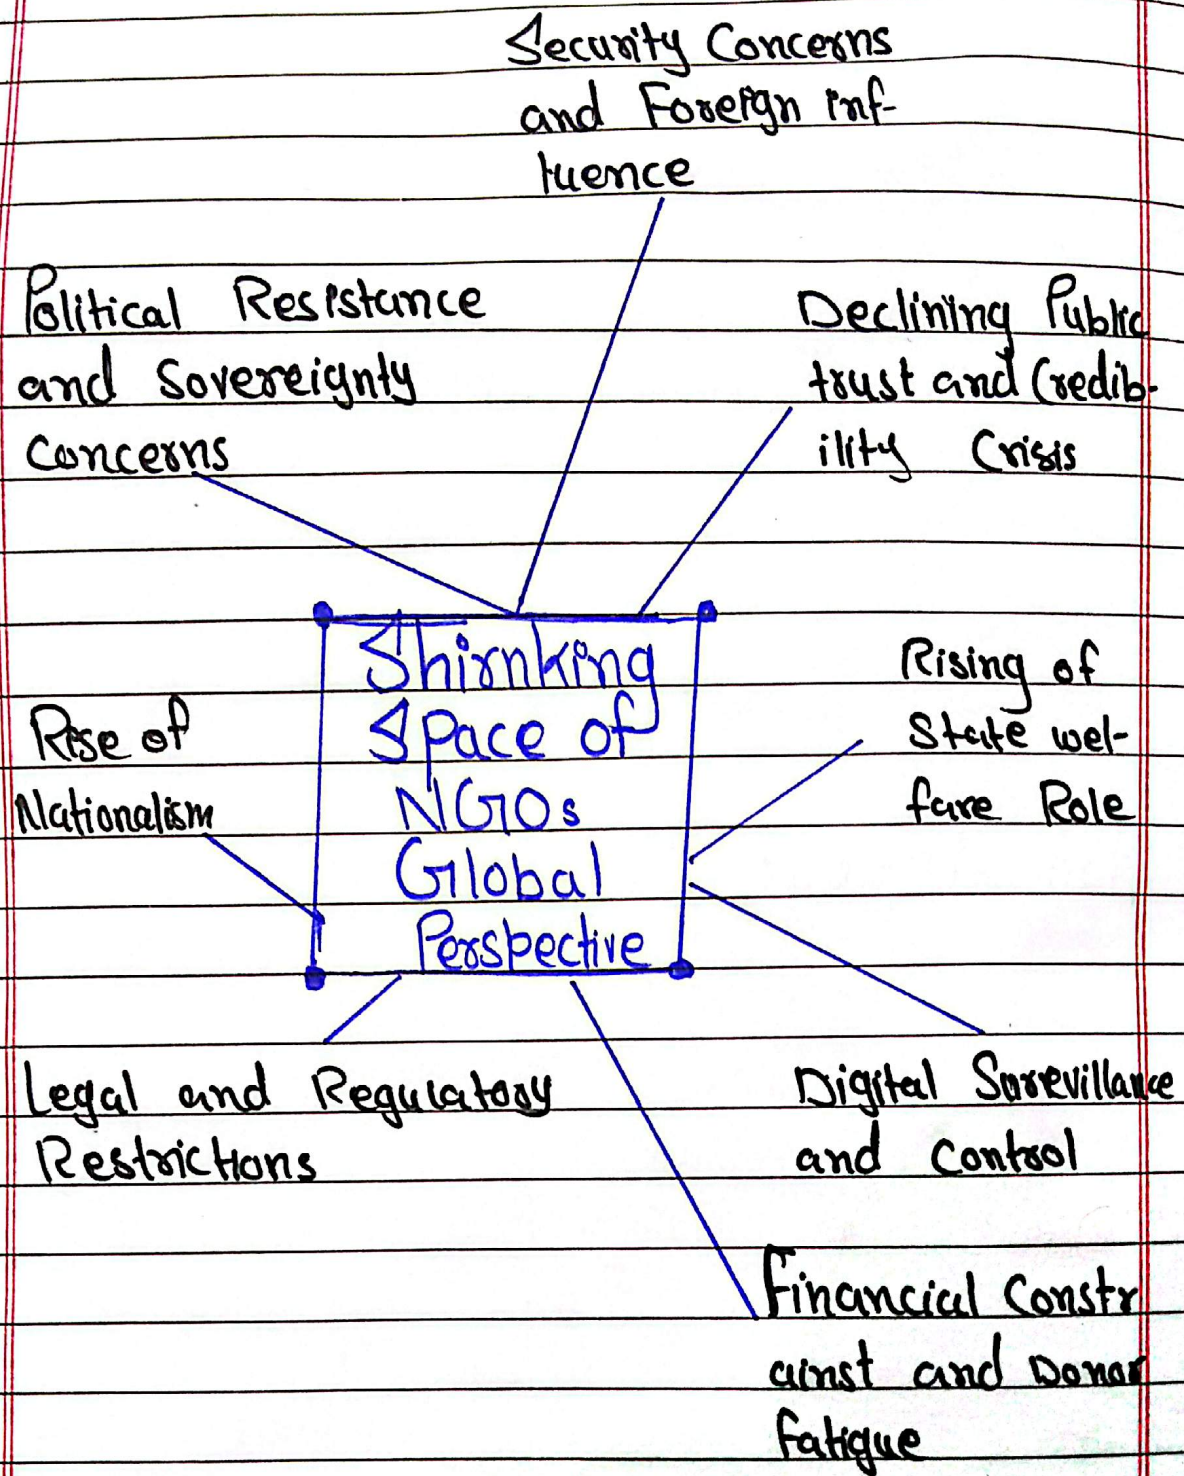 Security Concerns
and Foreign inf-
luence
Political Resistance
and Sovereignty
Concerns
Declining Public
trust and Credib-
ility Crisis
Shirnking
Space of
NGOs
Global
Perspective
Rise of
Nationalism
Rising of
State wel-
fare Role
Legal and Regulatory
Restrictions
Digital Surevillance
and Control
Financial Constr
ainst and Donor
fatigue